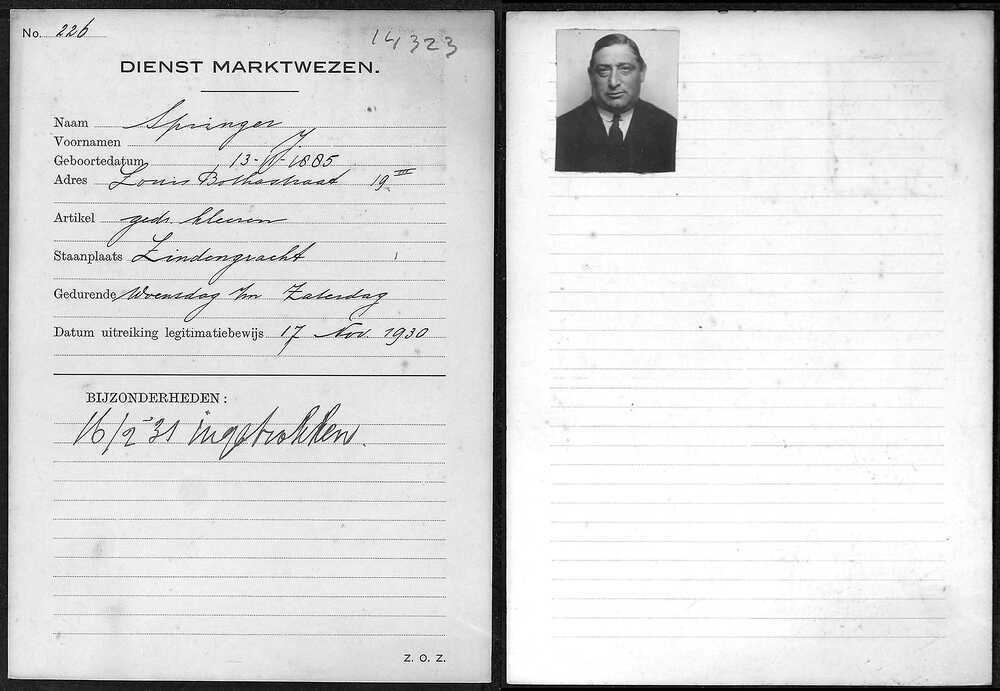 No. 226
14323
DIENST MARKTWEZEN.
Naam Springer
Voornamen J.
Geboortedatum 13-11-1885
Adres Louis Bothastraat 19 III
Artikel gedr. kleeren
Staanplaats Lindengracht
Gedurende Woensdag t/m Zaterdag
Datum uitreiking legitimatiebewijs 17 Nov. 1930
BIJZONDERHEDEN:
16/2-31 ingetrokken.
Z. O. Z.